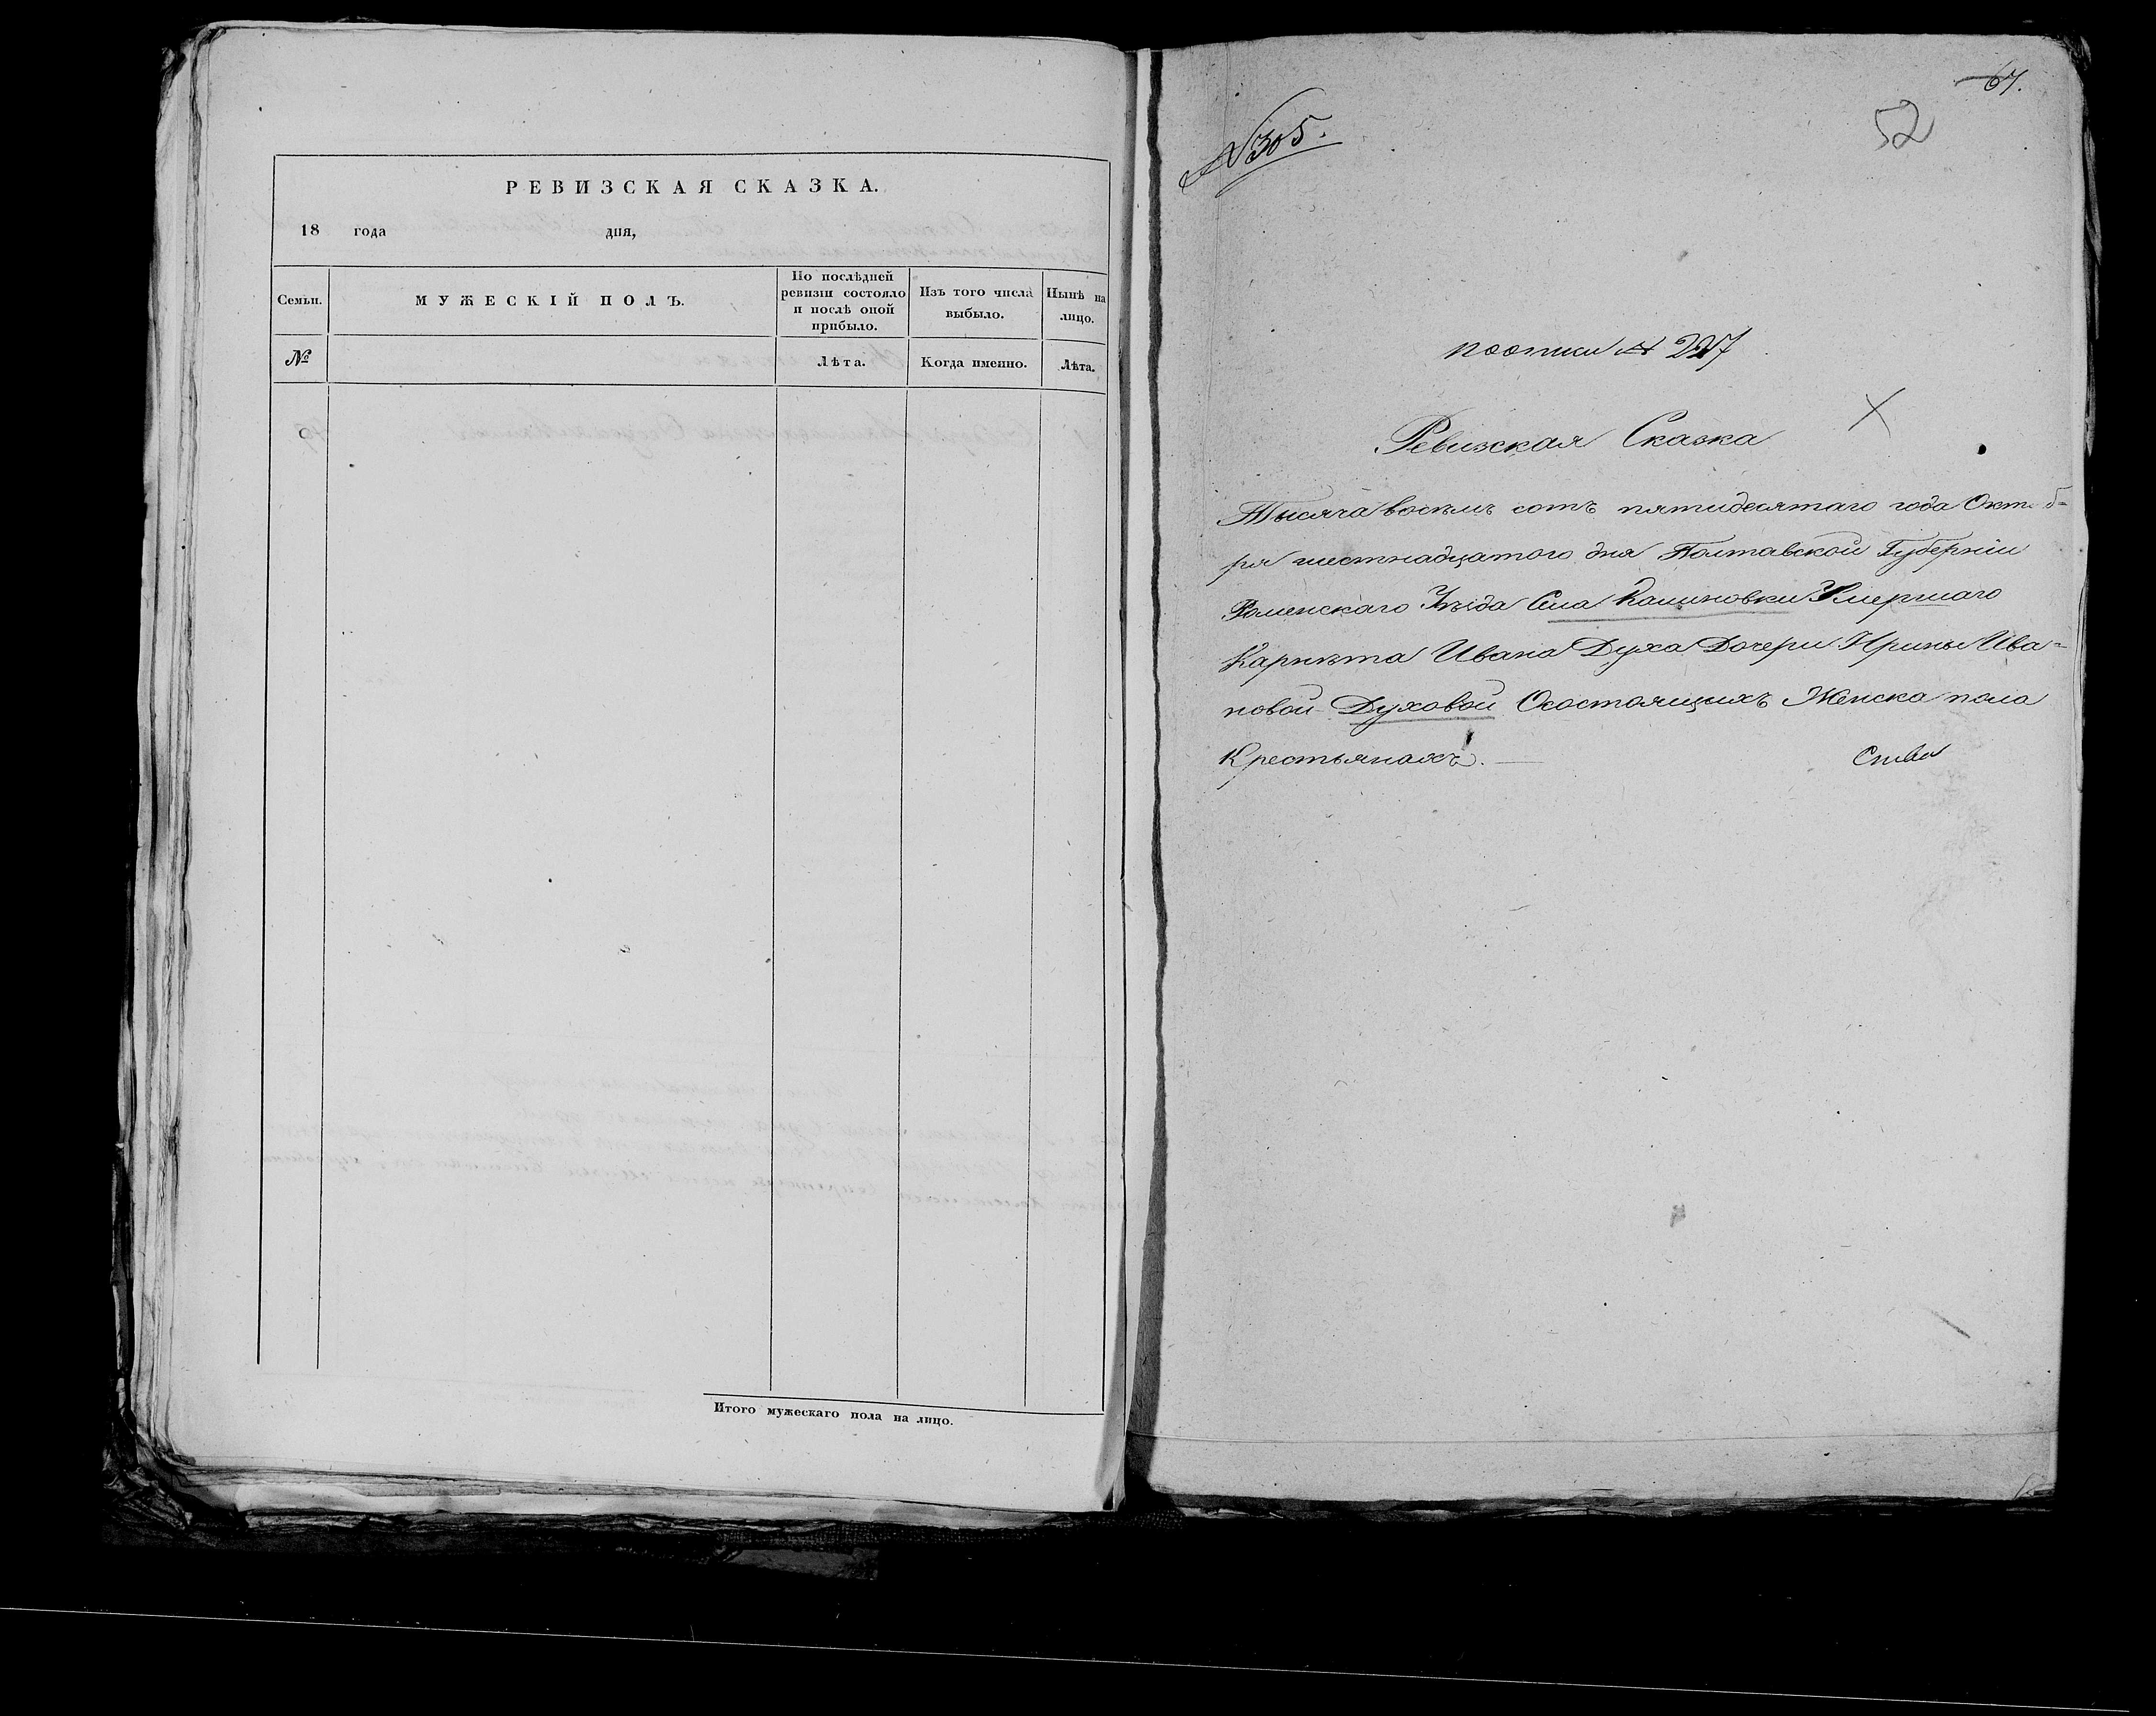 РЕВИЗСКАЯ СКАЗКА.
18 года дня,
Семьи.
МУЖЕСКІЙ ПОЛЪ.
По послѣдней ревизіи состояло и послѣ оной прибыло.
Изъ того числа выбыло.
Нынѣ на лицо.
№
Лѣта.
Когда именно.
Лѣта.
Итого мужескаго пола на лицо.
67.
52
№ 305.
поописи № 227
Ревизкая Сказка
Тысяча восѣмъ сотъ пятидесятаго года Октяб=
ря шестнадцатого дня Полтавской Губерніи
Роменскаго Уѣзда Села Калиновки Умершаго
Карнѣта Ивана Духа Дочери Ирины Ива=
новой Духовой Осостоящихъ Женска пола
Крестьянахъ.